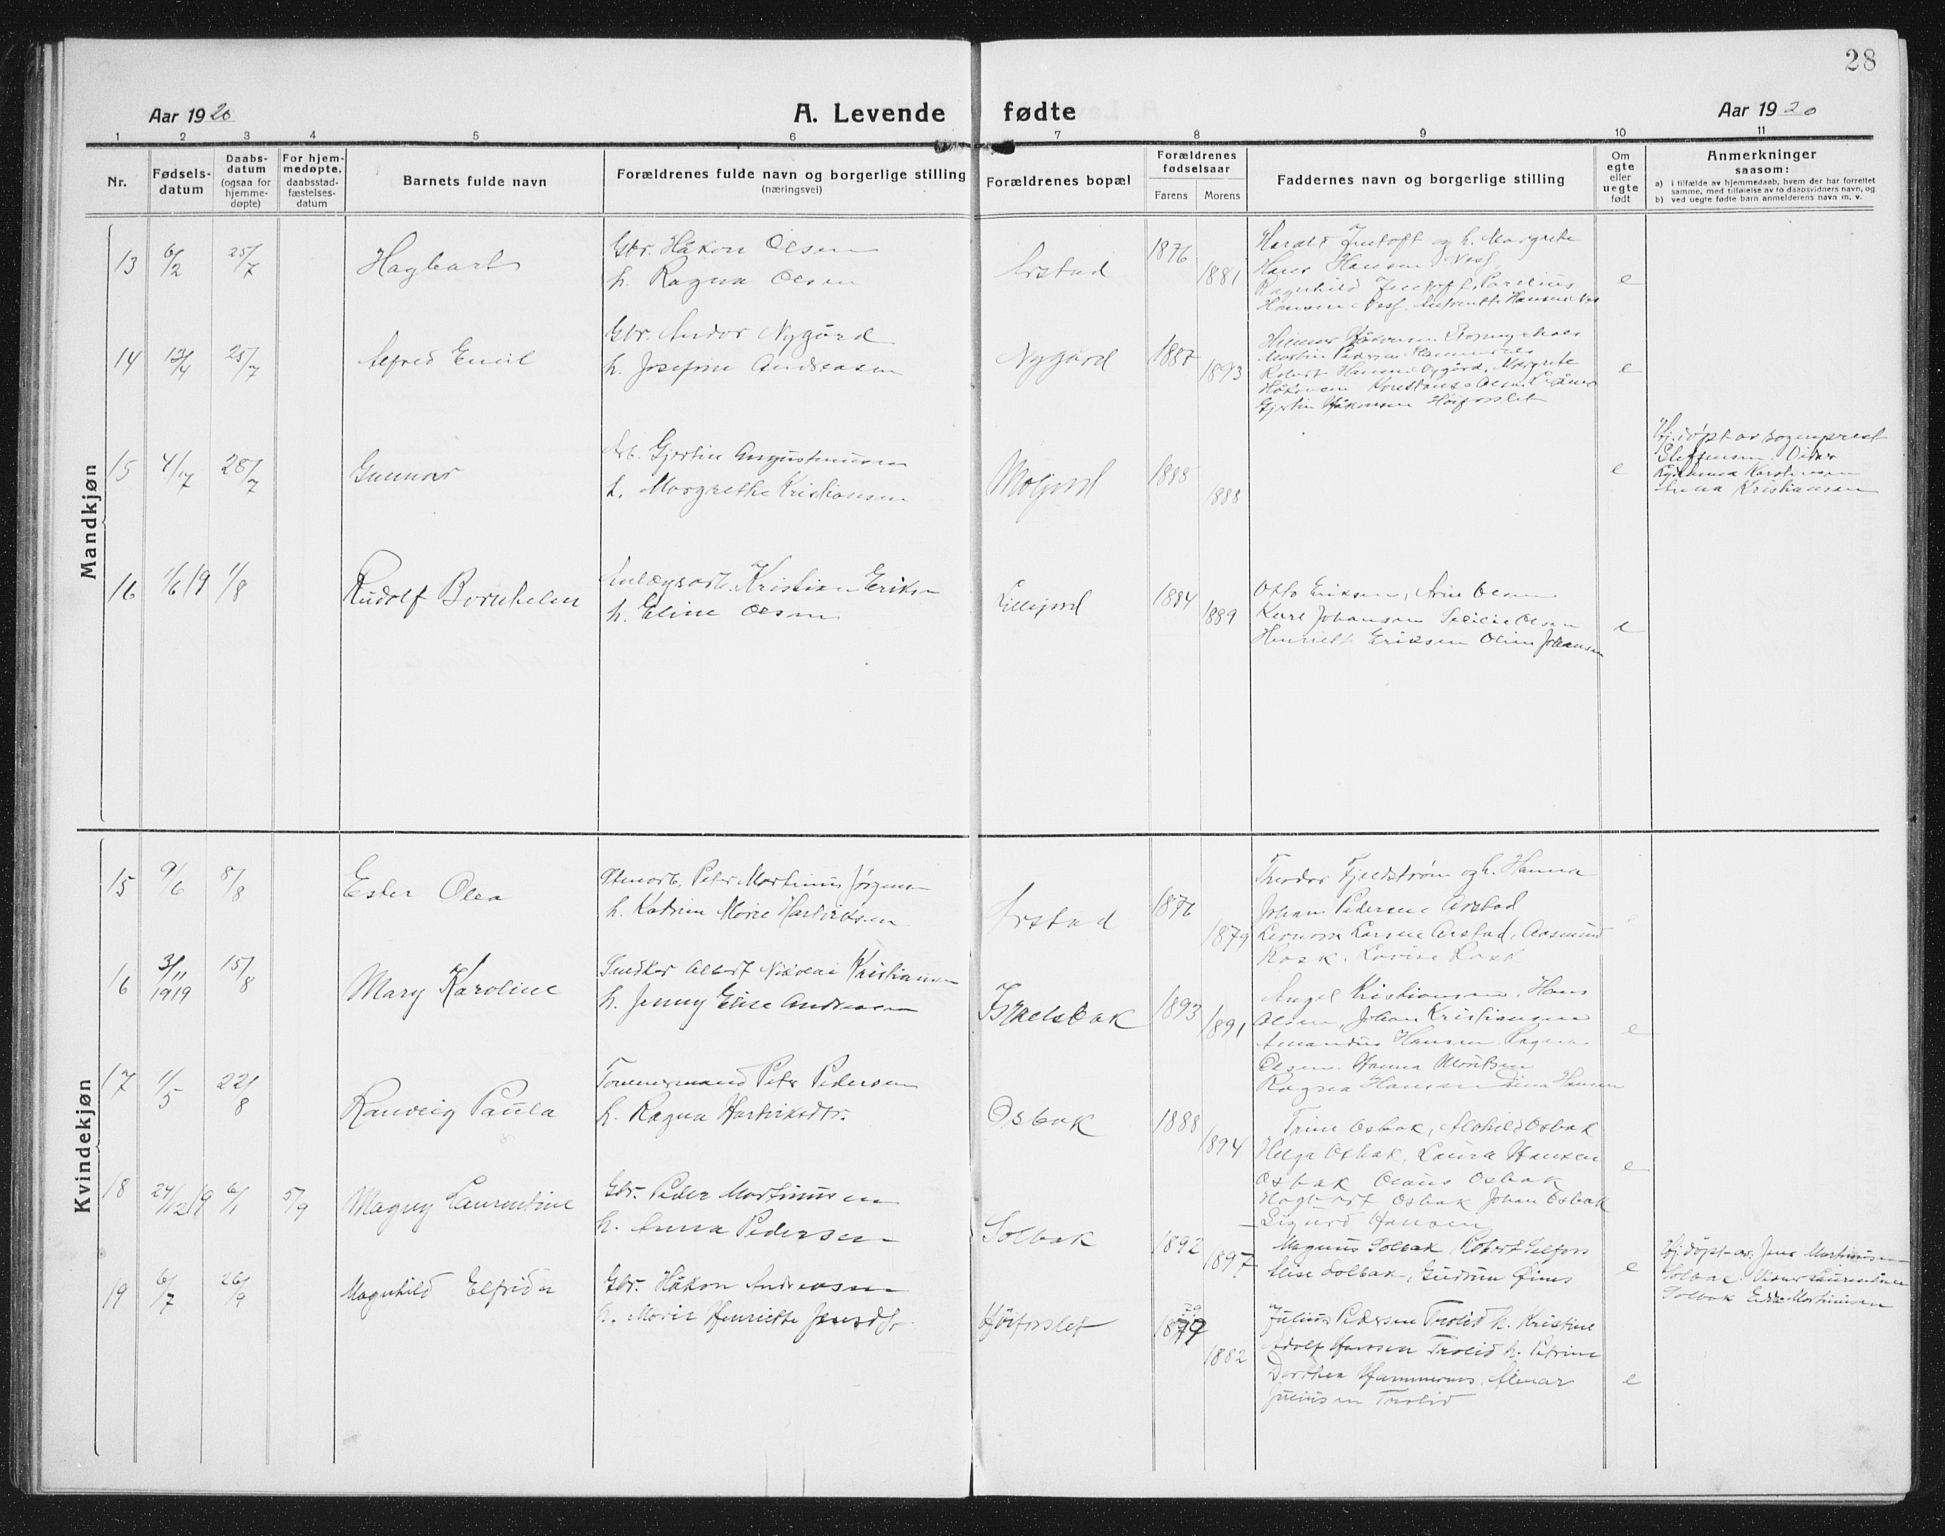 28
Aar 1920
A. Levende fødte
Aar 1920
1 2 3 4 5 6 7 8 9 10 11
Nr.
Fødsels-
datum
Daabs-
datum
(ogsaa for
hjemme-
døpte)
For hjem-
medøpte,
daabsstad-
fæstelses-
datum
Barnets fulde navn
Forældrenes fulde navn og borgerlige stilling
(næringsvei)
Forældrenes bopæl
Forældrenes
fødselsaar
Farens Morens
Faddernes navn og borgerlige stilling
Om
egte
eller
uegte
født
Anmerkninger
saasom:
a) i tilfælde av hjemmedaab, hvem der har forrettet
samme, med tilføielse av to daabsvidners navn, og
b) ved uegte fødte barn anmelderens navn m. v.
Mandkjøn
13 6/2 25/7 Hagbart
Gbr. Håkon Olsen
h. Ragna Olsen
Arstad 1876 1881
og h. Margrete
Hans Hansen Nesf.
Ragnhild
Hansen Nesf. Hansen
e
14 12/4 25/7 Alfred Emil
Gbr. Andor Nygård
h. Josefine Andreasen
Nygård 1887 1893
Håkonsen
Martin Pedersen
Robert Hansen Nygård, Margrete
Håkonsen Konstanse Olsen
Gjertin Håkonsen Høiforslet
e
15 4/7 28/7 Gunnar
Arb. Gjertin Augustinussen
h. Margrethe Kristiansen
Moljord 1888 1888
e
Hj.døpt av sogneprest
Steffensen. Vidner
Karstensen
Anna Kristiansen
16 1/6 19 1/8 Rudolf Bornhelm
Anlægsarb. Kristian Eriksen
h. Eline Olsen
Lillejord 1884 1889
Otto Eriksen, Arne Olsen
Karl Johansen Olsen
Henriette Eriksen Oline Johansen
e
Kvindekjøn
15 9/6 8/8 Ester Olea
Stenarb. Peter Martinus Jørgensen
h. Katrine Marie Hartviksen
Arstad 1876 1879
Theodor Fjeldstrøm og h. Hanna
Johan Pedersen Arstad
Leonora Larsen Arstad, Aasmund
Rask. Lovise Rask
16 3/11 1919 15/8 Mary Karoline
Albert Nikolai Kristiansen
h. Jenny Elise Andreasen
Israelsbak 1893 1891
Angel Kristiansen, Hans
Olsen, Johan Kristiansen
Amandus Hansen Ragna
Olsen. Hanna
Ragna Hansen Dina Hansen
e
17 1/5 22/8 Ranveig Paula
Tømmermand Peter Pedersen
h. Ragna Hartviksdtr.
Osbak 1888 1894
Trine Osbak, Alohild Osbak
Helga Osbak, Laura Hansen
Osbak Olaus Osbak
Hagbart Osbak Johan Osbak
Sigurd Hansen
e
18 24/12 19 6/1 5/9 Magny Laurentine
Gbr. Peder Martinussen
h. Anna Pedersen
Solbak 1892 1897
Magnus Solbak, Robert
Elise Solbak, Gudrun
e
Hj.døpt av Jens Martinussen
Solbak Vidner Laurentine
Solbak Martinussen
19 6/7 26/9 Magnhild Elfrida
Gbr. Håkon Andreassen
h. Marie Henriette Jensdtr
Høiforslet 1879 1882
Julius Pedersen Trolid h. Kristine
Adolf Hansen Trolid h. Petrine
Dorthea Almar
Juliussen Trolid
e